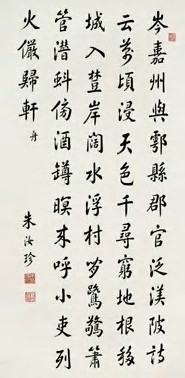 岑嘉州與鄠縣郡官泛渼陂詩
云萬頃浸天色千尋窮地根移
城入樹岸闊水浮村閒鷺驚簫
管潛蚪傍酒罇暝来呼小吏列
火儼歸軒 舟
朱汝珍